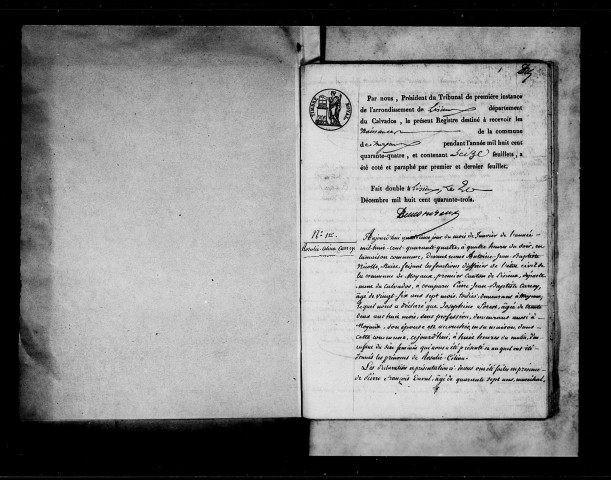 Par nous, Président du Tribunal de première instance
de l'arrondissement de Lisieux département
du Calvados, le présent Registre destiné à recevoir les
Naissances de la commune
de Moyaux pendant l'année mil huit cent
quarante-quatre, et contenant Seize feuillets, a
été coté et paraphé par premier et dernier feuillet.
Fait double à Lisieux, le 20
Décembre mil huit cent quarante-trois.
N° 1er
Rosalie-Céline Carrey
Aujourd'hui quatrième jour du mois de Janvier de l'année
mil-huit-cent-quarante-quatre, à quatre heures du soir, en
la maison commune, devant nous Antoine-Jean-Baptiste
Nicolle, Maire, faisant les fonctions d'officier de l'état civil de
la commune de Moyaux, premier Canton de Lisieux, départe-
ment du Calvados, a comparu Pierre Jean-Baptiste Carrey,
âgé de vingt-six ans sept mois, demeurant à Moyaux,
lequel nous a déclaré que Joséphine âgée de trente
deux ans huit mois, sans profession, demeurant aussi à
Moyaux, son épouse est accouchée, en sa maison, dans
cette commune, cejourd'hui, à heures du matin, d'un
enfant du sexe féminin qu'il nous a été présenté et auquel ont été
donnés les prénoms de Rosalie-Céline.
Les déclaration et présentation ci-dessus ont été faites en présence
de Pierre François Duval, âgé de quarante sept ans,